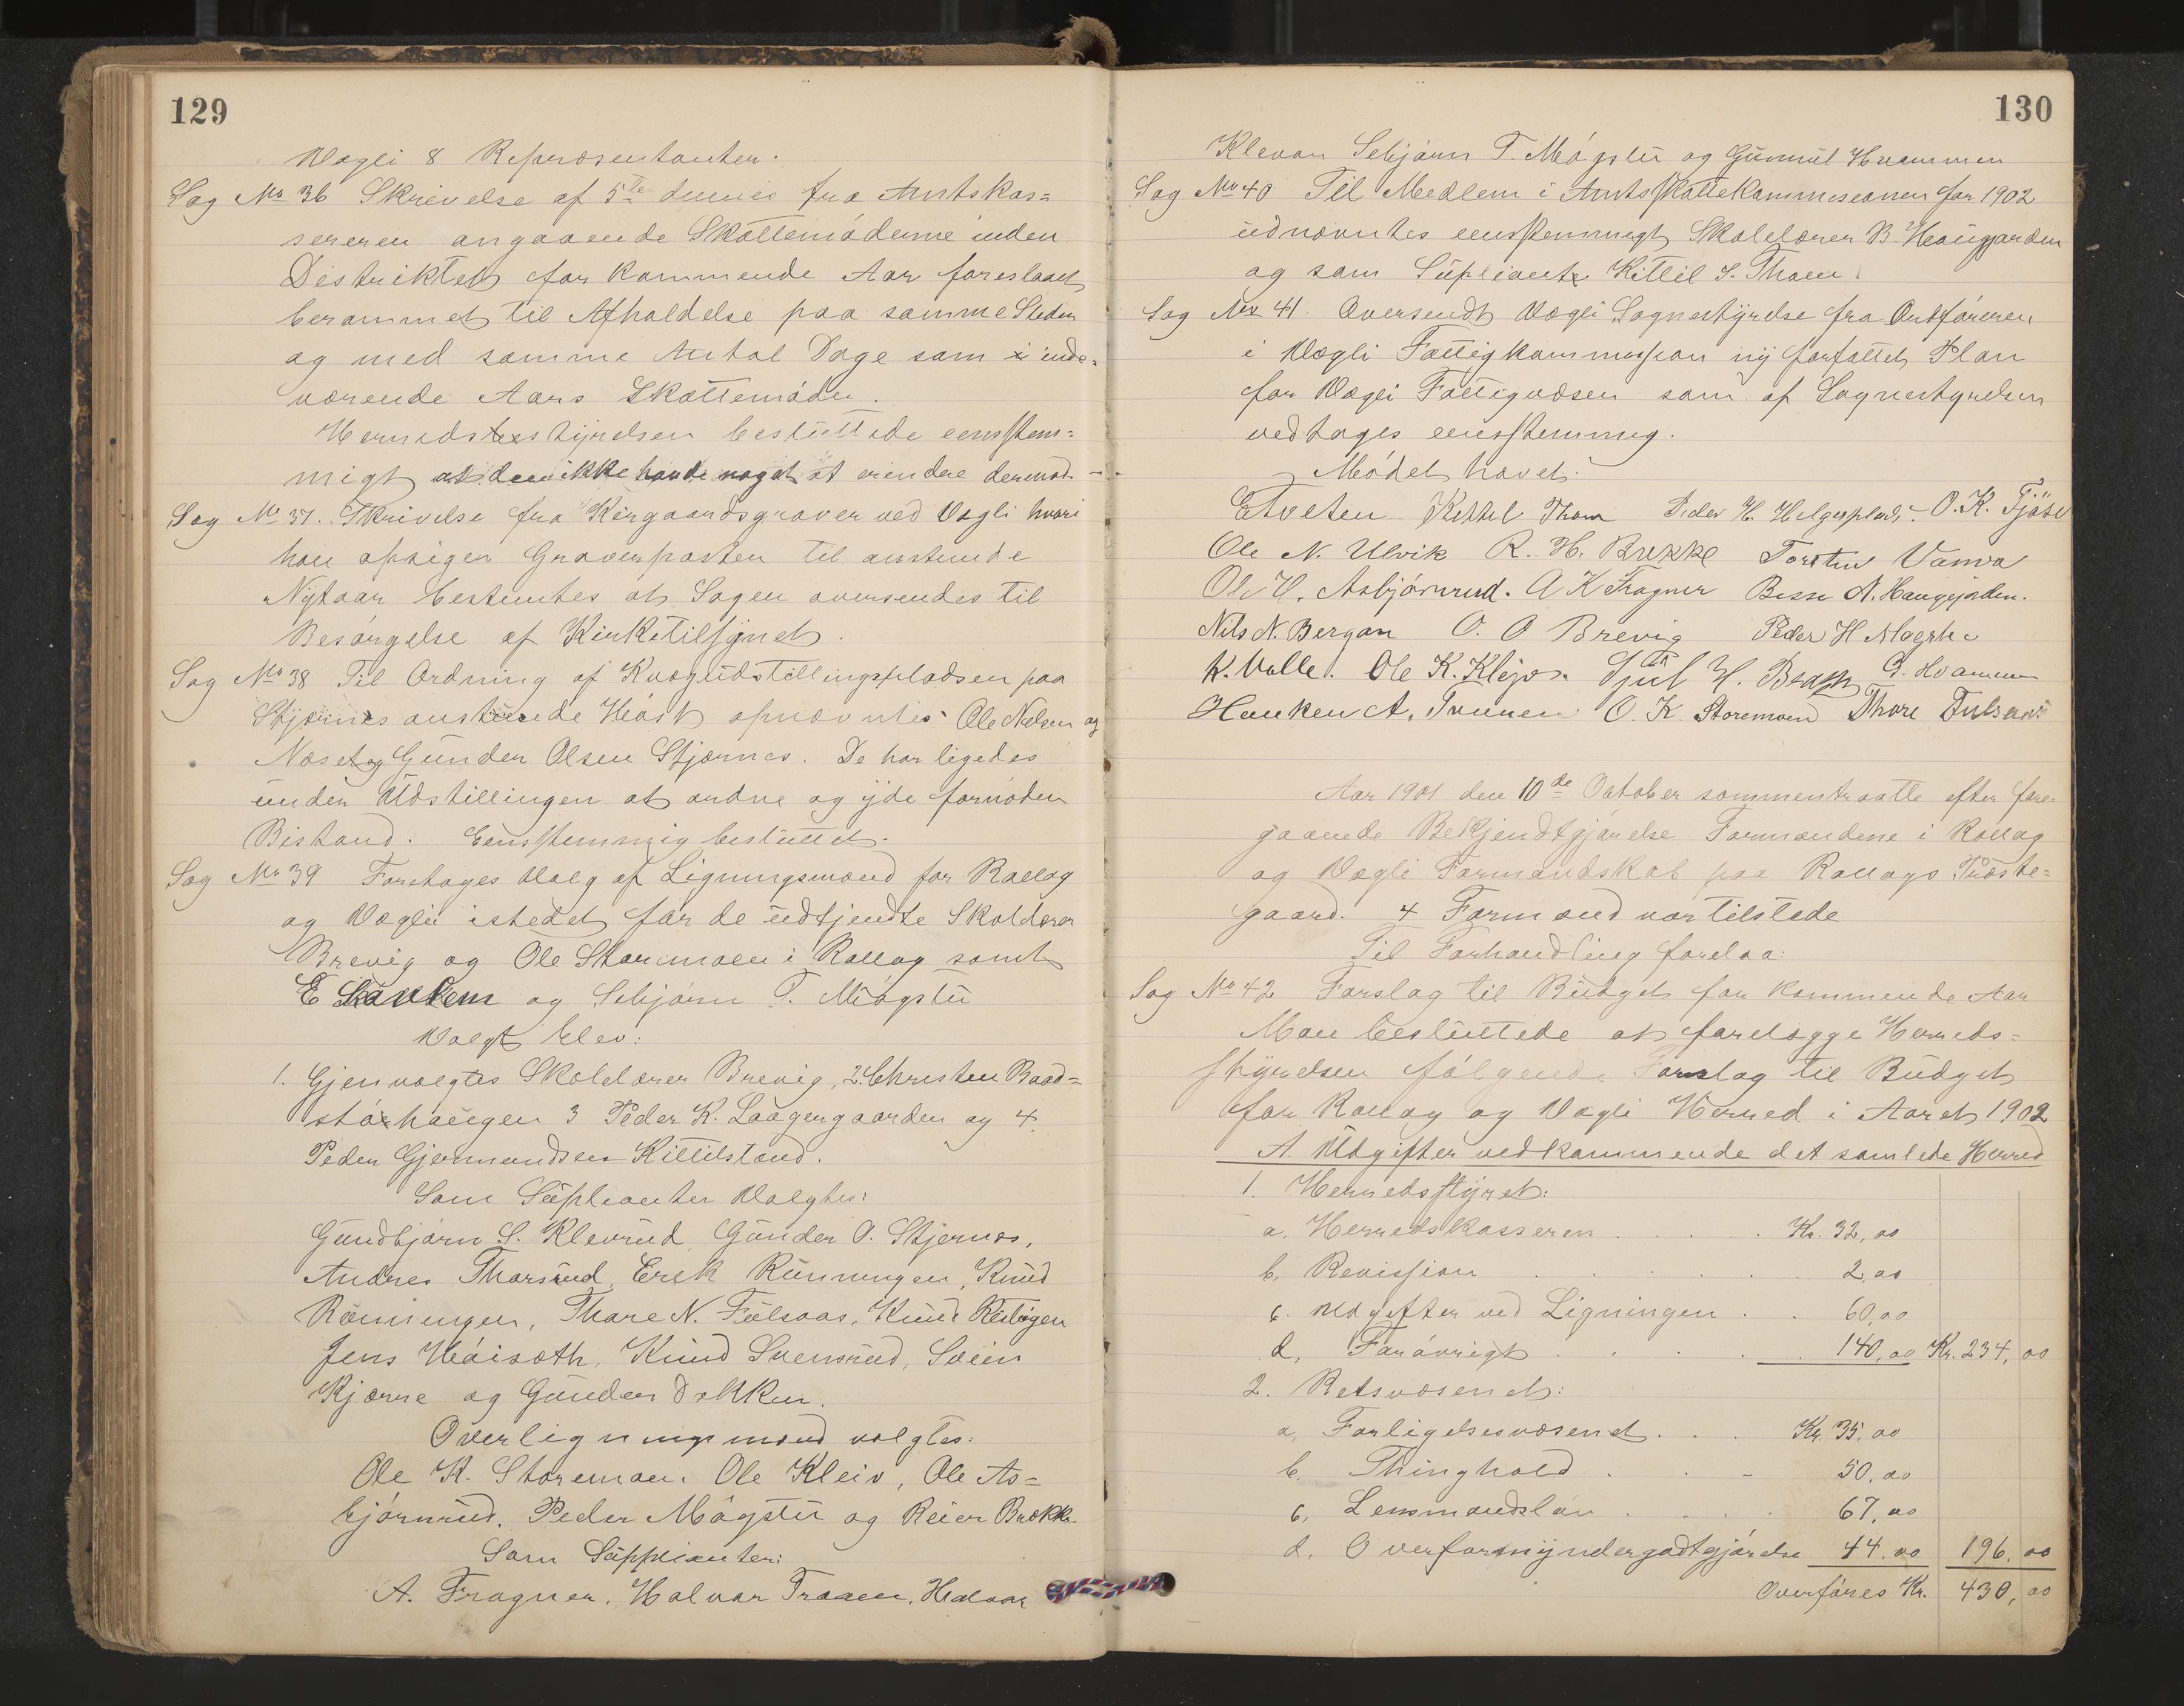 129
Vægli 8 Repræsentanter.
Sag No 36 Skrivelse af 5te dennes fra Amtskas=
sereren angaaende Skattemøderne inden
Distriktet for kommende Aar foreslaaet
berammet til Afholdelse paa samme Steder
og med samme Antal Dage som i inde=
værende Aars Skattemøder.
Herredsstyrelsen besluttede eensstem=
migt at den ikke havde noget at erindre dermod.
Sag No 37. Skrivelse fra Kirgaardsgraver ved Vægli hvori
han opsiger Graverposten til anstunde
Nytaar bestemtes at Sagen oversendes til
Besørgelse af Kirketilsynet.
Sag No 38 Til Ordning af Kvægudstillingspladsen paa
Stjærnes anstunde Høst opnævntes Ole Nielsen og
Næset og Gunder Olsen Stjærnes. De har ligedes
under Udstillingen at ordne og yde fornøden
Bistand. Eensstemmig besluttet.
Sag No 39 Foretages Valg af Ligningsmænd for Rollag
og Væglie istedet for de udtjendte Skolelærer
Brevig og Ole Storemoen i Rollag samt
E Skavlem og Sebjørn T. Møgstu
Valgt blev:
1. Gjenvalgtes Skolelærer Brevig, 2. Christen Baad=
støhaugen 3 Peder K. Laagergaarden og 4.
Peder Gjermundsen Kittilsland.
Som Supleanter Valgtes:
Gundbjørn S. Klevrud, Gunder O. Stjernes,
Andres Thorsrud, Erek Runningen, Knud
Rønningen, Thore N. Fulsaas, Knud
Jens Høisæth, Knud Svensrud, Svein
Kjærre og Gunder Dokken.
Overligningsmænd valgtes:
Ole K. Storemoen. Ole Kleiv, Ole As=
bjørnrud, Peder Møgstu og Reier Brække
Som Suppleanter:
A. Fragner, Halvor Traaen, Halvor
130
Klevan Sebjørn T. Møgstu og Gunnul Hvammen
Sag No 40 Til Medlem i Amtsskattekommissionen for 1902
udnævntes eensstemmigt Skolelærer B. Haugjorden
og som Supleant Kittil S. Thoen.
Sag No 41. Oversendt Vægli Sognestyrelse fra Ordføreren
i Vægli Fattigkommission ny forfattet Plan
for Vægli Fattigvæsen som af Sognestyrelsen
vedtages eensstemmig.
Mødet hævet.
E Tveten Kittil Thoen Peder H. Helgesplads. O. K. Fjøse
Ole N. Ulvik R. H. Brekke Torsten Vamra
Ole H. Asbjørnrud. A K Fragner Besse N. Haugjorden.
Nils N. Bergan O. O Brevig Peder H Møgstu
K. Valle. Ole K. Kleiv. Gjul H. G. Hvammen
Haaken A. Tvunen O. K. Storemoen Thore Fulsaas
Aar 1901 den 10de Oktober sammentraatte efter fore=
gaaende Bekjendtgjørelse Formændene i Rollag
og Vægli Formandskab paa Rollags Præste=
gaard. 4 Formænd var tilstede
Til Forhandling forelaa:
Sag No 42 Forslag til Budget for kommende Aar
Man besluttede at forelægge Herreds=
styrelsen følgende Forslag til Budget
for Rollag og Vægli Herred i Aaret 1902
A. Udgifter vedkommende det samlede Herred
1. Herredsstyret:
a. Herredskasseren . . . . Kr. 32,00
b. Revission . . . . . 2,00
c. Udgifter ved Ligningen . . 60,00
d. Forøvrigt . . . . . 140,00 Kr. 234,00
2. Retsvæsenet:
a. Forligelsesvæsenet . . . Kr. 35,00
b. Thinghold . . - 50,00
c. Lensmandsløn . . . . 67,00
d. Overformyndergodtgjørelse 44,00 196,00
Overføres Kr. 430,00